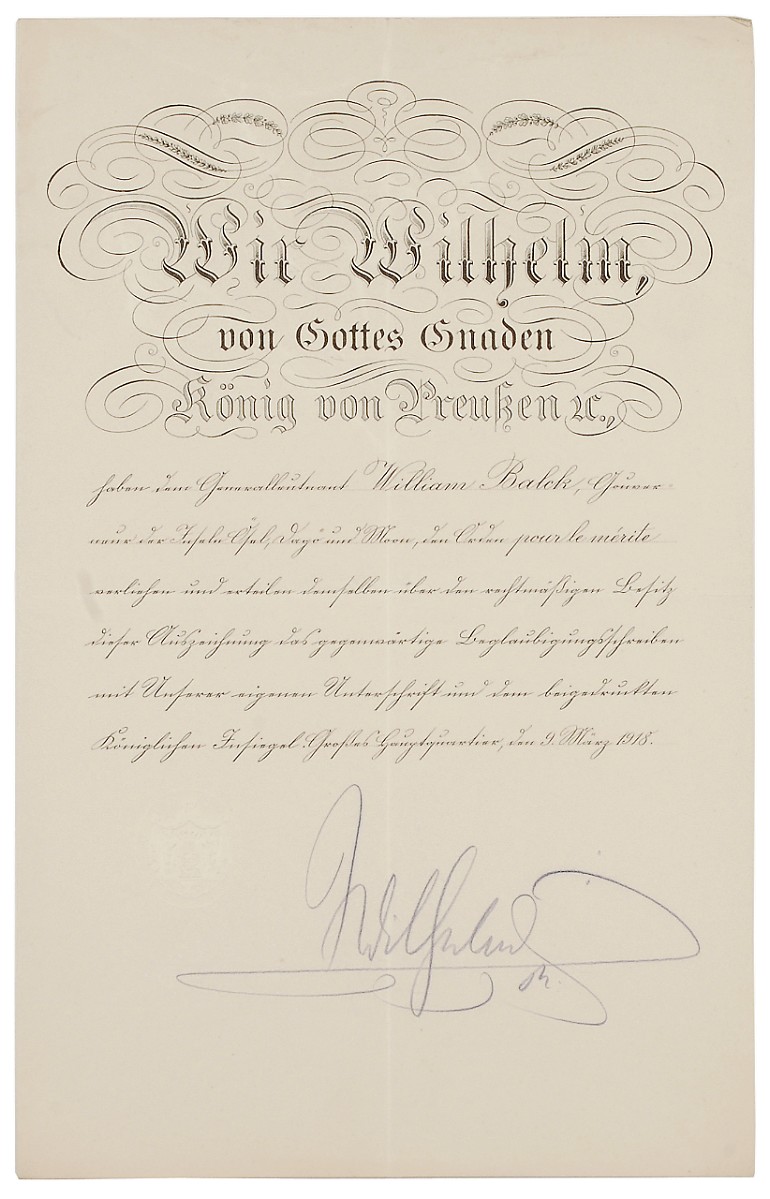 Wir Wilhelm,
von Gottes Gnaden
König von Preußen ꝛc.,
haben dem Generalleutnant William Balck, Gouver-
neur der Inseln Ösel, Dagö und Moon, den Orden pour le mérite
verliehen und erteilen demselben über den rechtmäßigen Besitz
dieser Auszeichnung das gegenwärtige Beglaubigungsschreiben
mit Unserer eigenen Unterschrift und dem beigedruckten
Königlichen Insiegel. Großes Hauptquartier, den 9. März 1918.
Wilhelm
R.